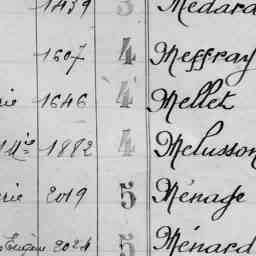 1479 3 Médard
1607 4 Meffray
rie 1646 4 Mellet
Mie 1882 4 Melusson
rie 2019 5 Ménage
Eugène 2024 5 Ménard